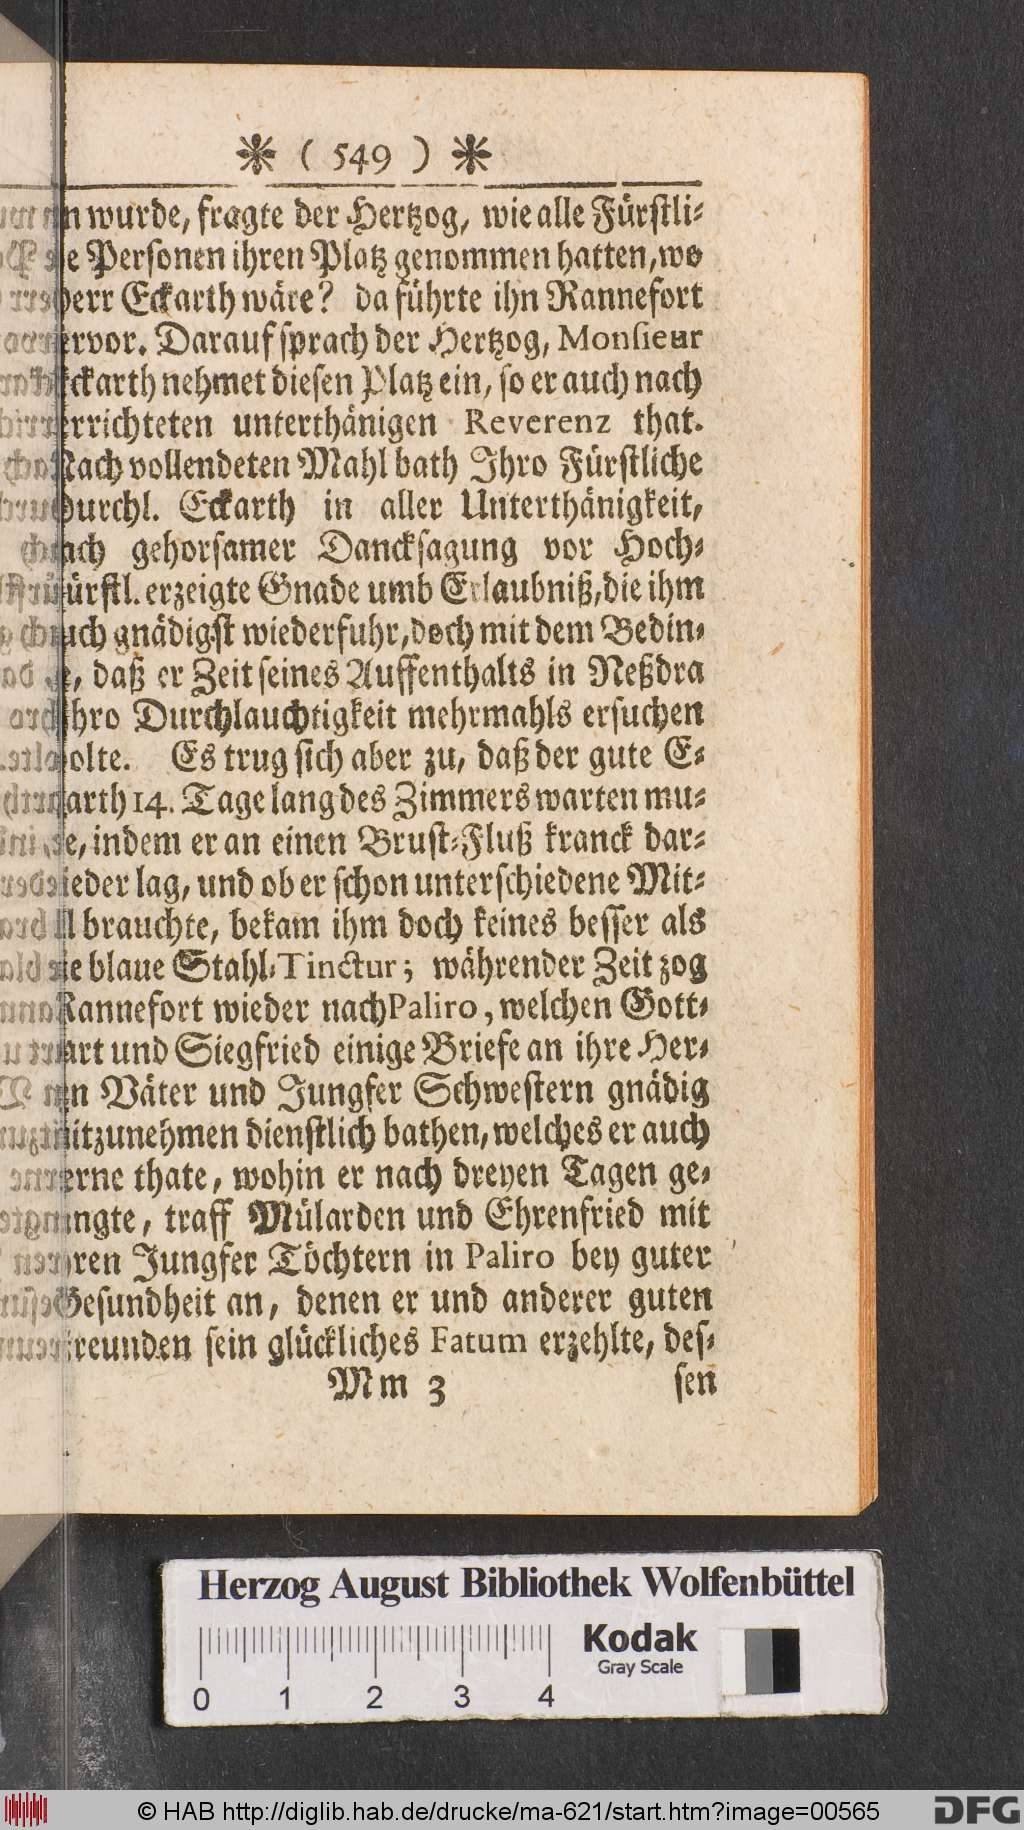 * ( 549 ) *
n wurde, fragte der Hertzog, wie alle Fürstli-
e Personen ihren Platz genommen hatten, wo
Herr Eckarth wäre? da führte ihn Rannefort
ervor. Darauf sprach der Hertzog, Monsieur
Eckarth nehmet diesen Platz ein, so er auch nach
errichteten unterthänigen Reverenz that.
Nach vollendeten Mahl bath Ihro Fürstliche
Durchl. Eckarth in aller Unterthänigkeit,
nach gehorsamer Dancksagung vor Hoch-
Fürstl. erzeigte Gnade umb Erlaubniß, die ihm
auch gnädigst wiederfuhr, doch mit dem Bedin-
e, daß er Zeit seines Auffenthalts in Neßdra
Ihro Durchlauchtigkeit mehrmahls ersuchen
solte. Es trug sich aber zu, daß der gute E-
karth 14. Tage lang des Zimmers warten mu-
e, indem er an einen Brust-Fluß kranck dar-
nieder lag, und ob er schon unterschiedene Mit-
l brauchte, bekam ihm doch keines besser als
die blaue Stahl-Tinctur; währender Zeit zog
Rannefort wieder nach Paliro, welchen Gott-
art und Siegfried einige Briefe an ihre Her-
n Väter und Jungfer Schwestern gnädig
mitzunehmen dienstlich bathen, welches er auch
gerne thate, wohin er nach dreyen Tagen ge-
langte, traff Mülarden und Ehrenfried mit
ihren Jungfer Töchtern in Paliro bey guter
Gesundheit an, denen er und anderer guten
Freunden sein glückliches Fatum erzehlte, des-
Mm 3 sen
Herzog August Bibliothek Wolfenbüttel
Kodak
Gray Scale
0 1 2 3 4
© HAB http://diglib.hab.de/drucke/ma-621/start.htm?image=00565
DFG